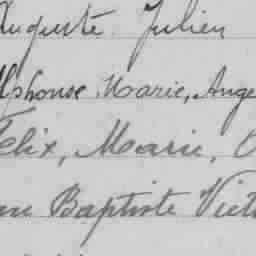 Auguste Julien
Alphonse Marie, Ange
Felix, Marie,
Baptiste Vict